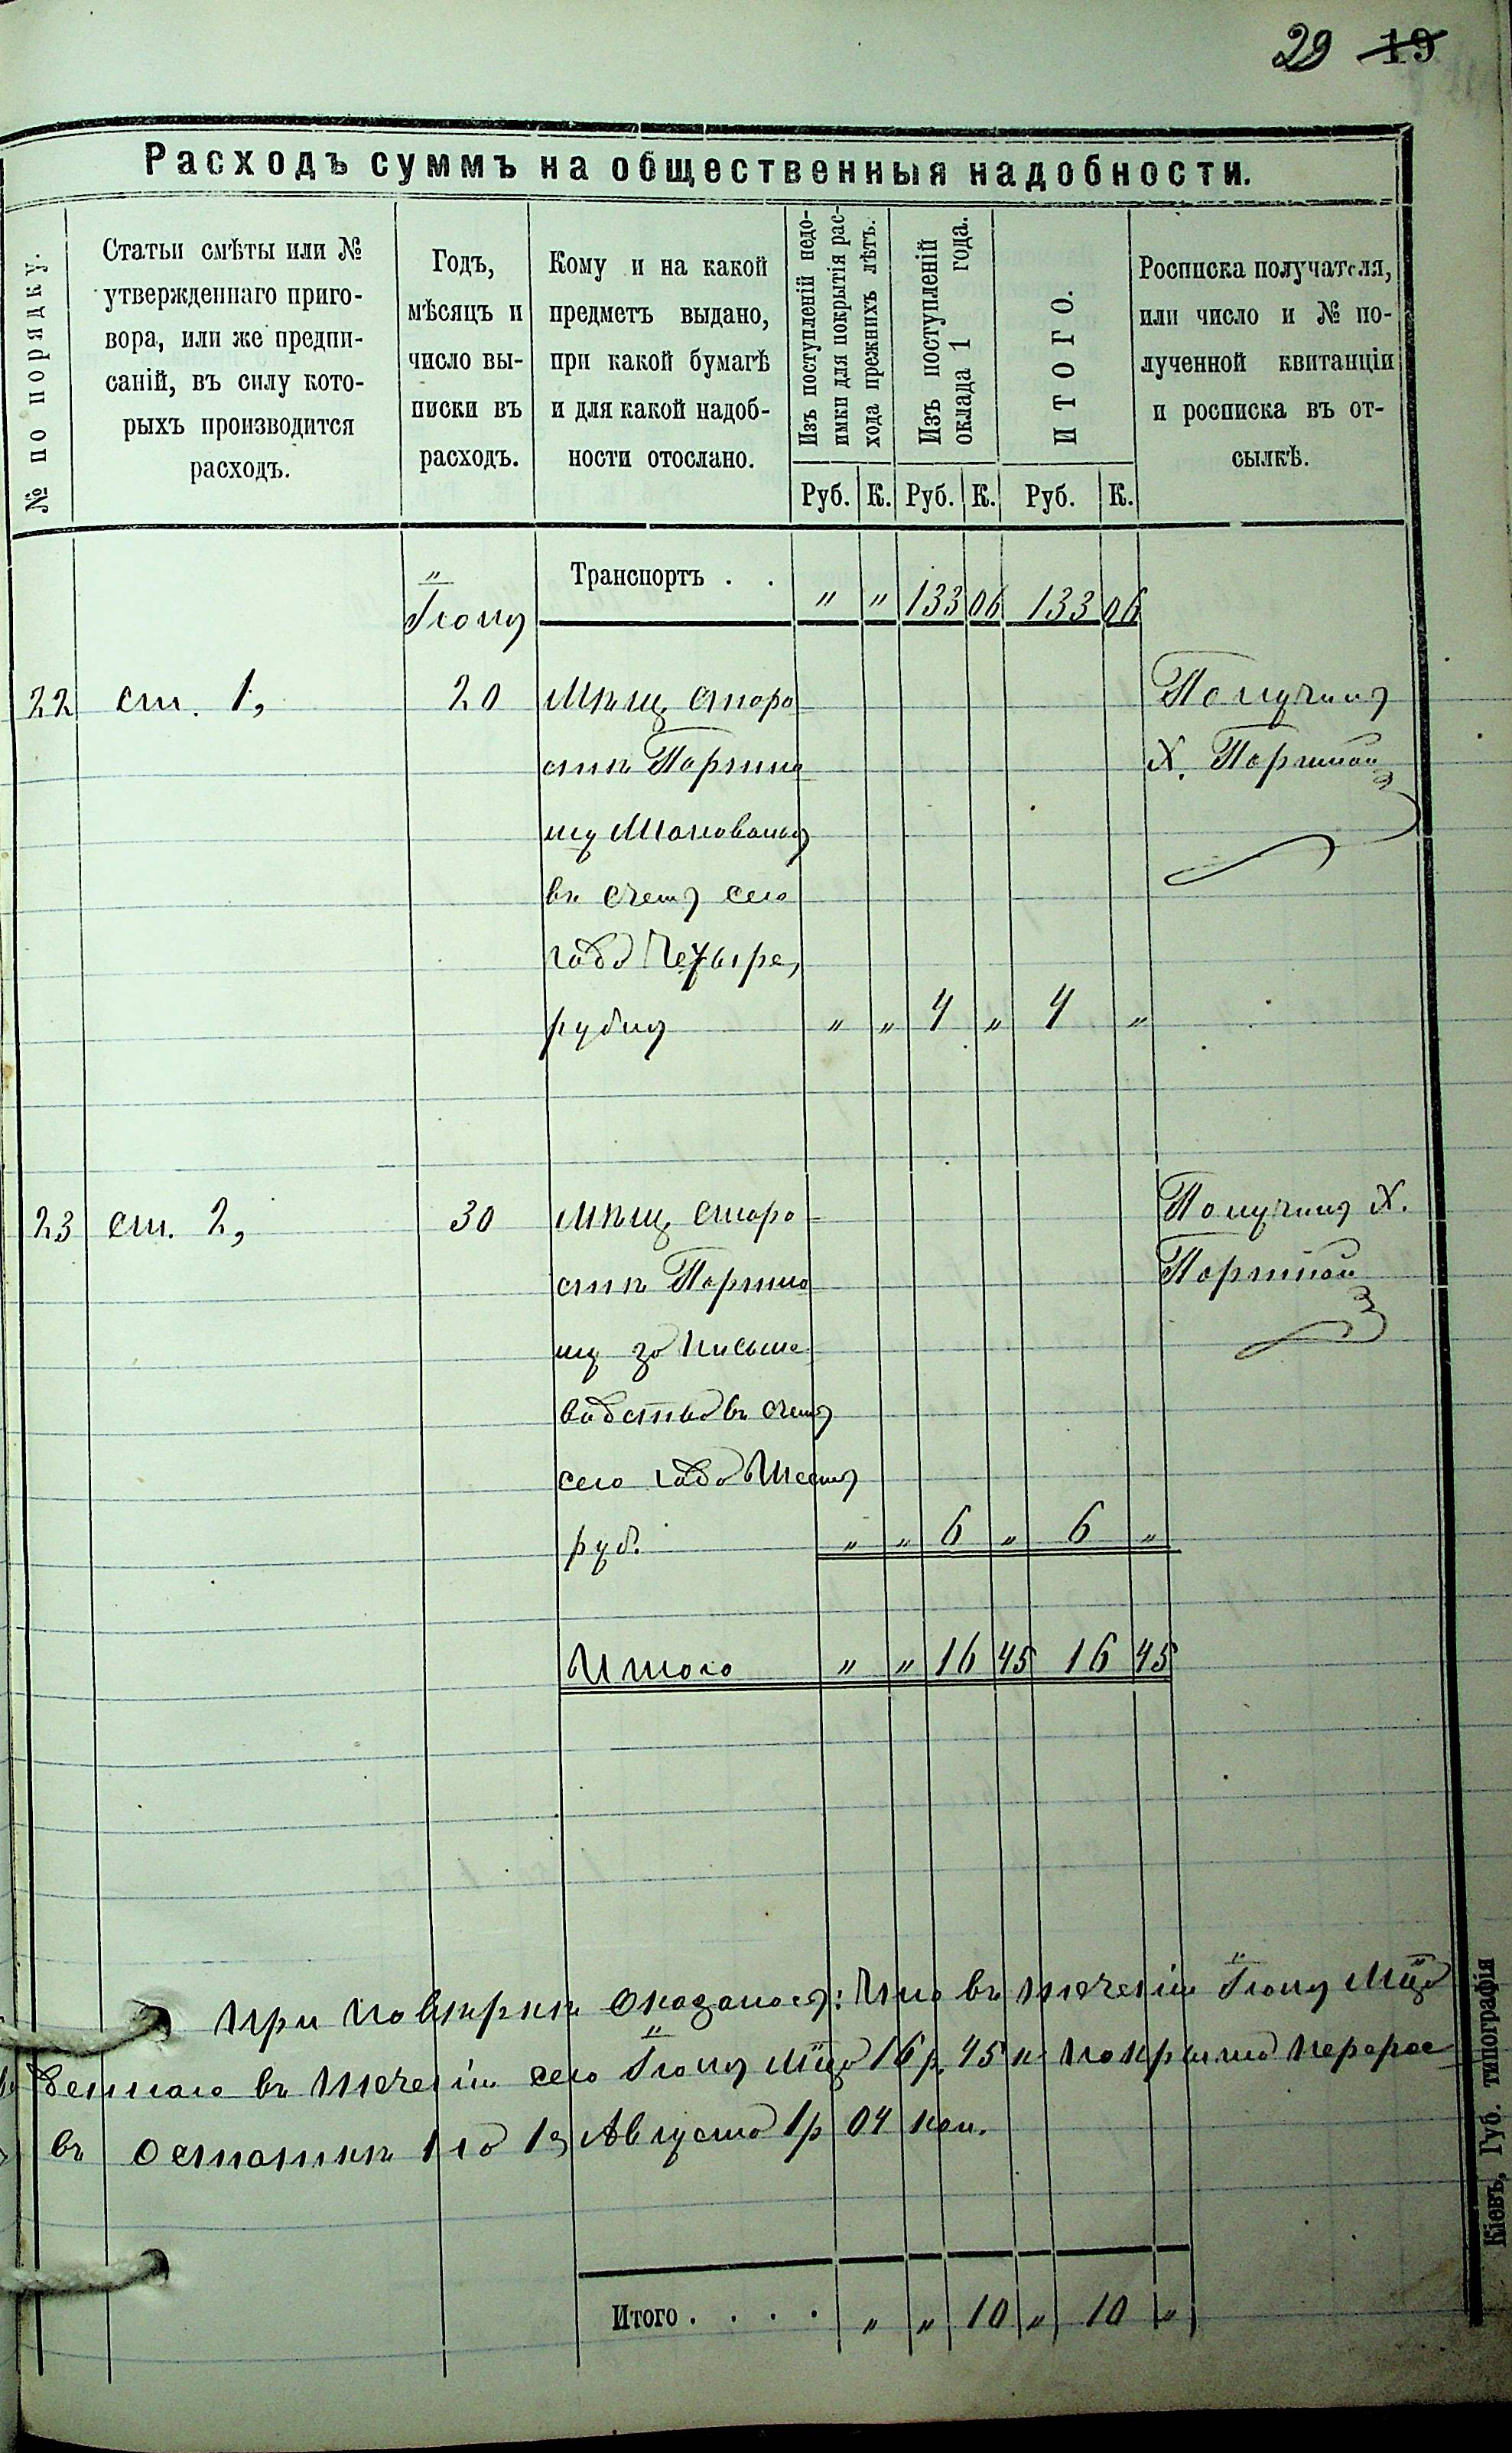 29 19
Расходъ суммъ на общественныя надобности.
№ по порядку.
Статьи смѣты или №
утвержденнаго приго-
вора, или же предпи-
саній, въ силу кото-
рыхъ производится
расходъ.
Годъ,
мѣсяцъ и
число вы-
писки въ
расходъ.
Кому и на какой
предметъ выдано,
при какой бумагѣ
и для какой надоб-
ности отослано.
Изъ поступленій недо-
имки для покрытія рас-
хода прежнихъ лѣтъ.
Изъ поступленій
оклада 1 года.
ИТОГО.
Росписка получателя,
или число и № по-
лученной квитанціи
и росписка въ от-
сылкѣ.
Руб. К. Руб. К. Руб. К.
Транспортъ . . " " 133 06 133 06
22 ст. 1, 20 Мѣщ. старо Получилъ
стѣ Х.
му жалованья
въ счетъ сего
года Четыре,
рубля " " 4 " 4 "
23 ст. 2, 30 Мѣщ. старо Получилъ Х.
стѣ
му за письмо
водство въ счетъ
сего года Шесть
руб. " " 6 " 6 "
Итого " " 16 45 16 45
При повѣркѣ оказалось: Что въ теченіи мца
деннаго въ теченіи сего мца 16 р. 45 к
въ остаткѣ на 1е Августа 1 р 04 коп.
Итого . . . . " " 10 " 10 "
Кіевъ, Губ. типографія